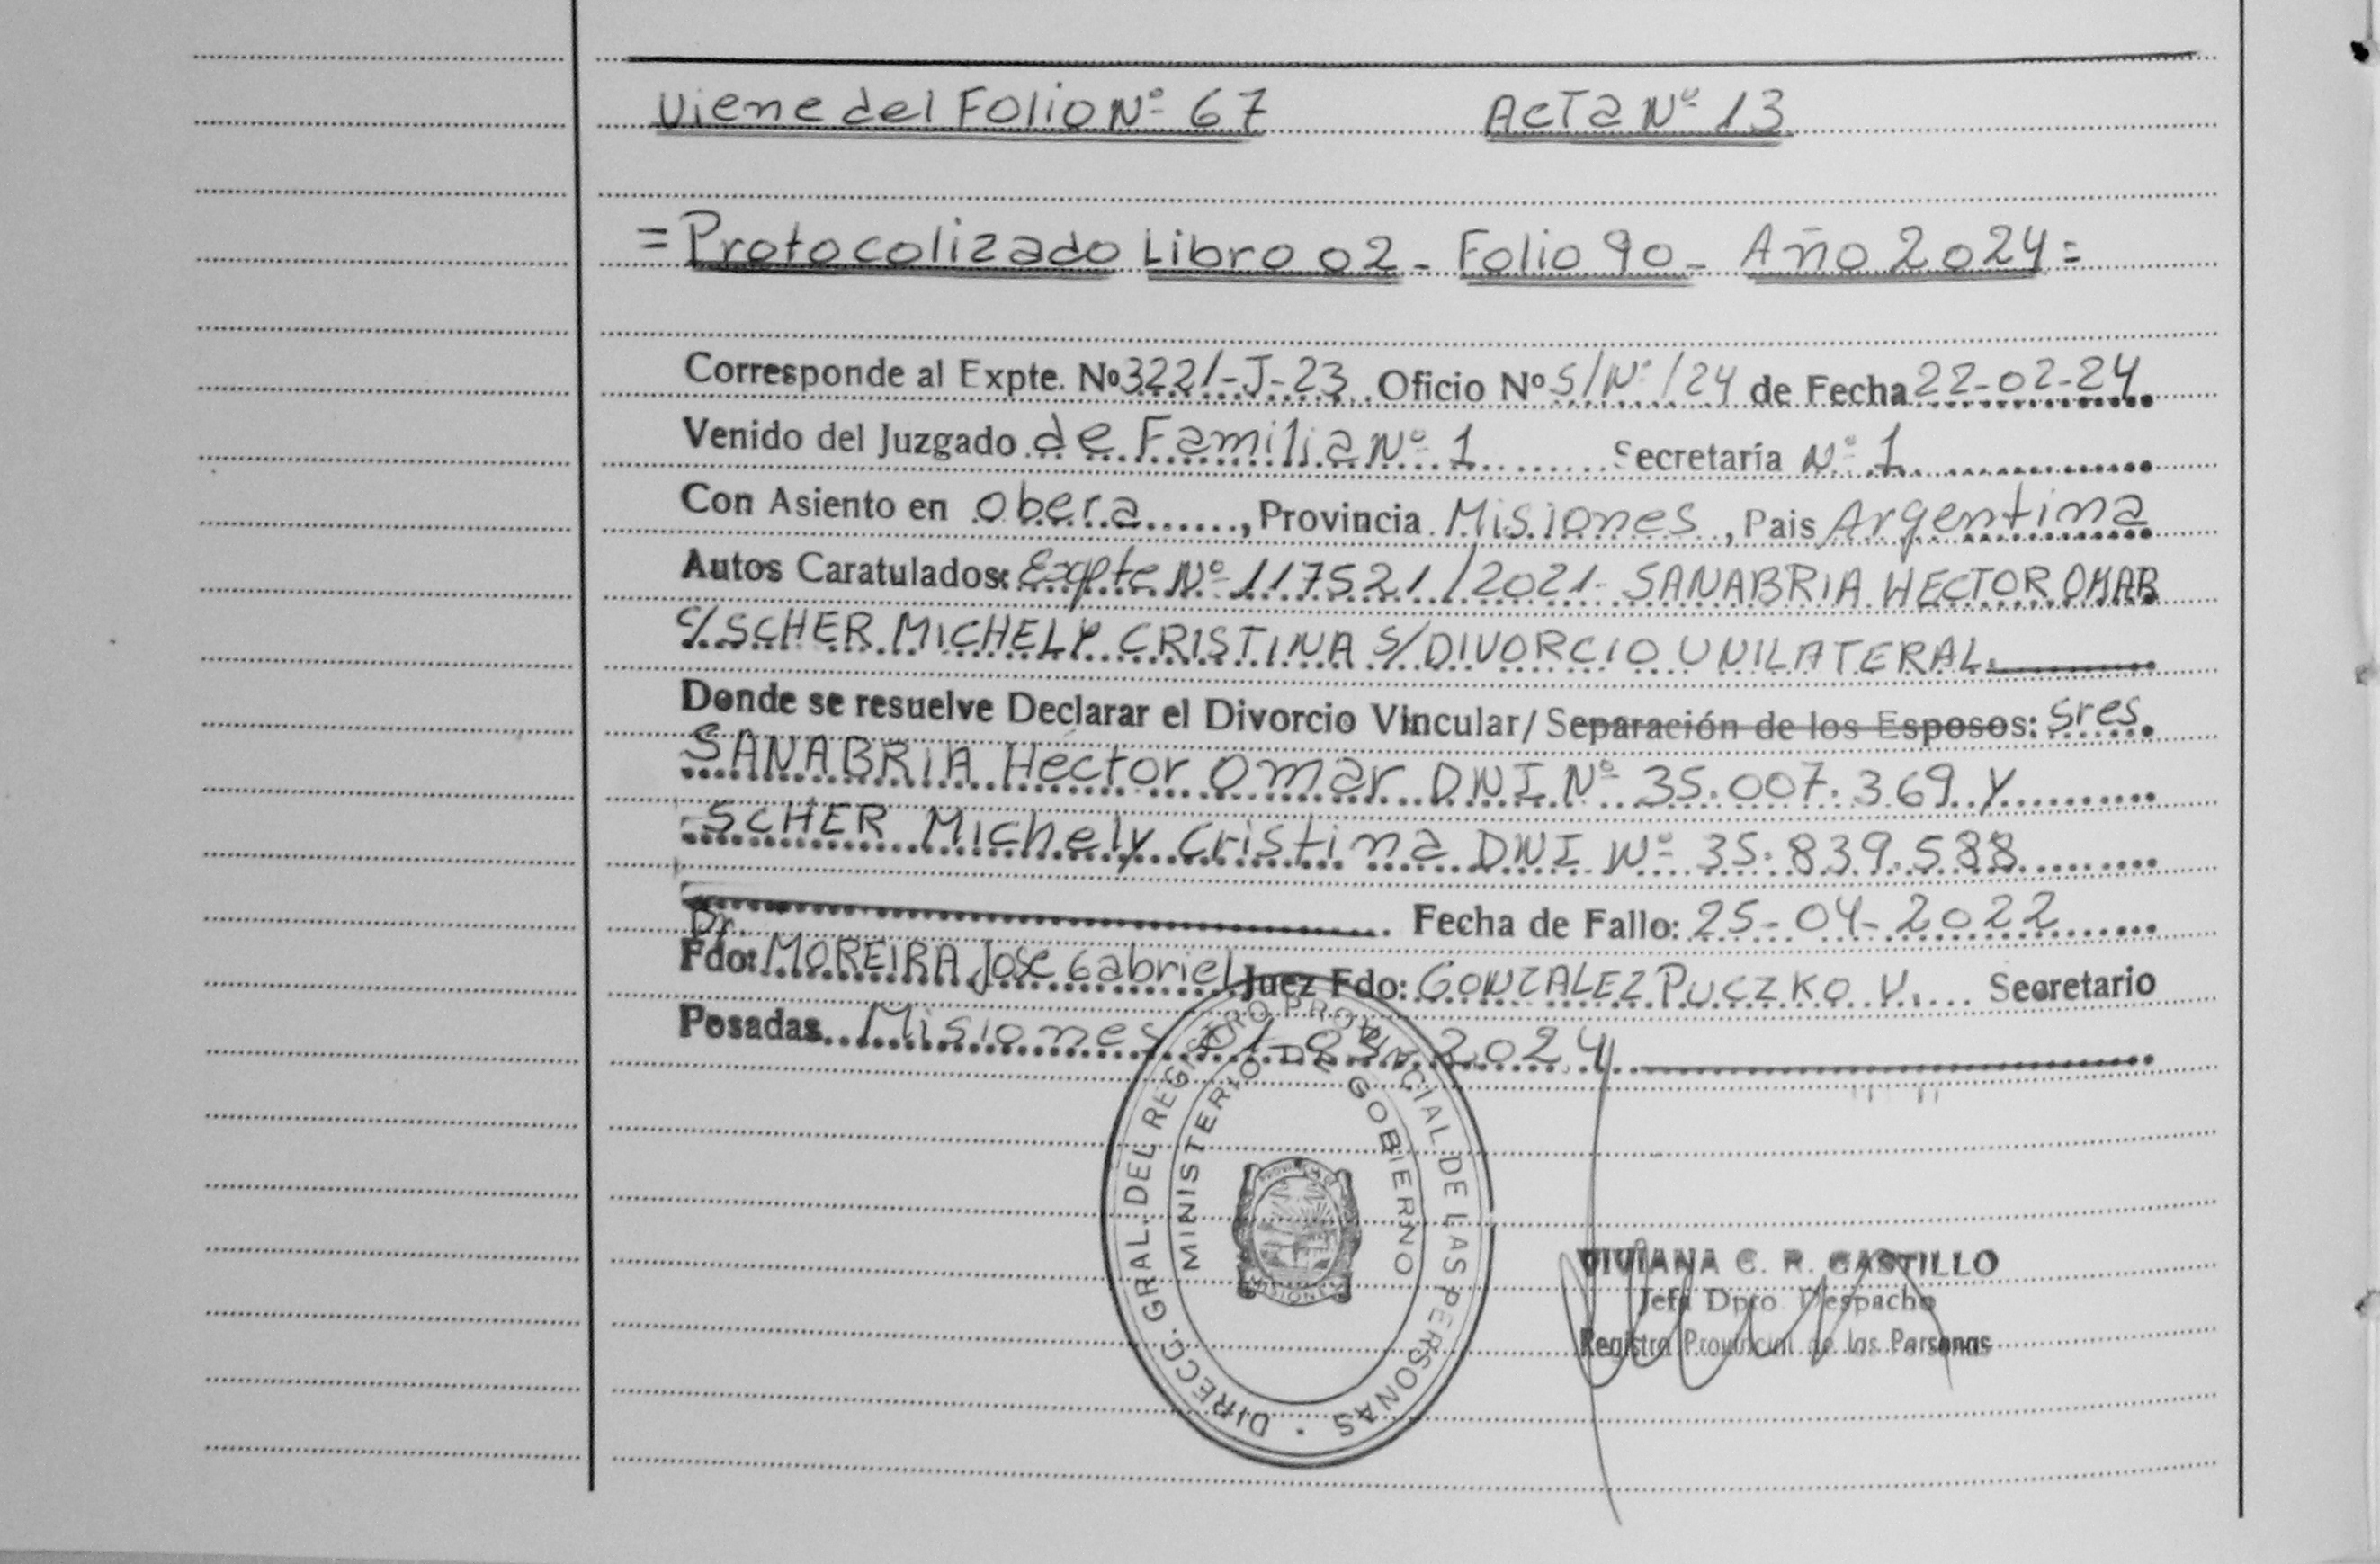 Viene del Folio Nº 67 Acta Nº 13
= Protocolizado Libro 02 - Folio 90 - Año 2024 =
Corresponde al Expte. Nº 3221-J-23 Oficio Nº S/Nº/24 de Fecha 22-02-24
Venido del Juzgado de Familia Nº 1 Secretaría Nº 1
Con Asiento en Obera, Provincia Misiones, Pais Argentina
Autos Caratulados: Expte Nº 117521/2021- SANABRIA HECTOR OMAR
C/SCHER MICHELY CRISTINA S/DIVORCIO UNILATERAL.
Donde se resuelve Declarar el Divorcio Vincular/Separación de los Esposos: Sres.
SANABRIA Hector Omar DNI Nº 35.007.369 y
SCHER Michely Cristina DNI Nº 35.839.588
Fecha de Fallo: 25-04-2022
Dr.
Fdo: MOREIRA Jose Gabriel Juez Fdo: GONZALEZ PUCZKO V. Secretario
Posadas Misiones 01-03-2024
DIRECC. GRAL. DEL REGISTRO PROVINCIAL DE LAS PERSONAS
MINISTERIO DE GOBIERNO
PROVINCIA DE
MISIONES
VIVIANA C. R. CASTILLO
Jefa Dpto. Despacho
Registro Provincial de las Personas